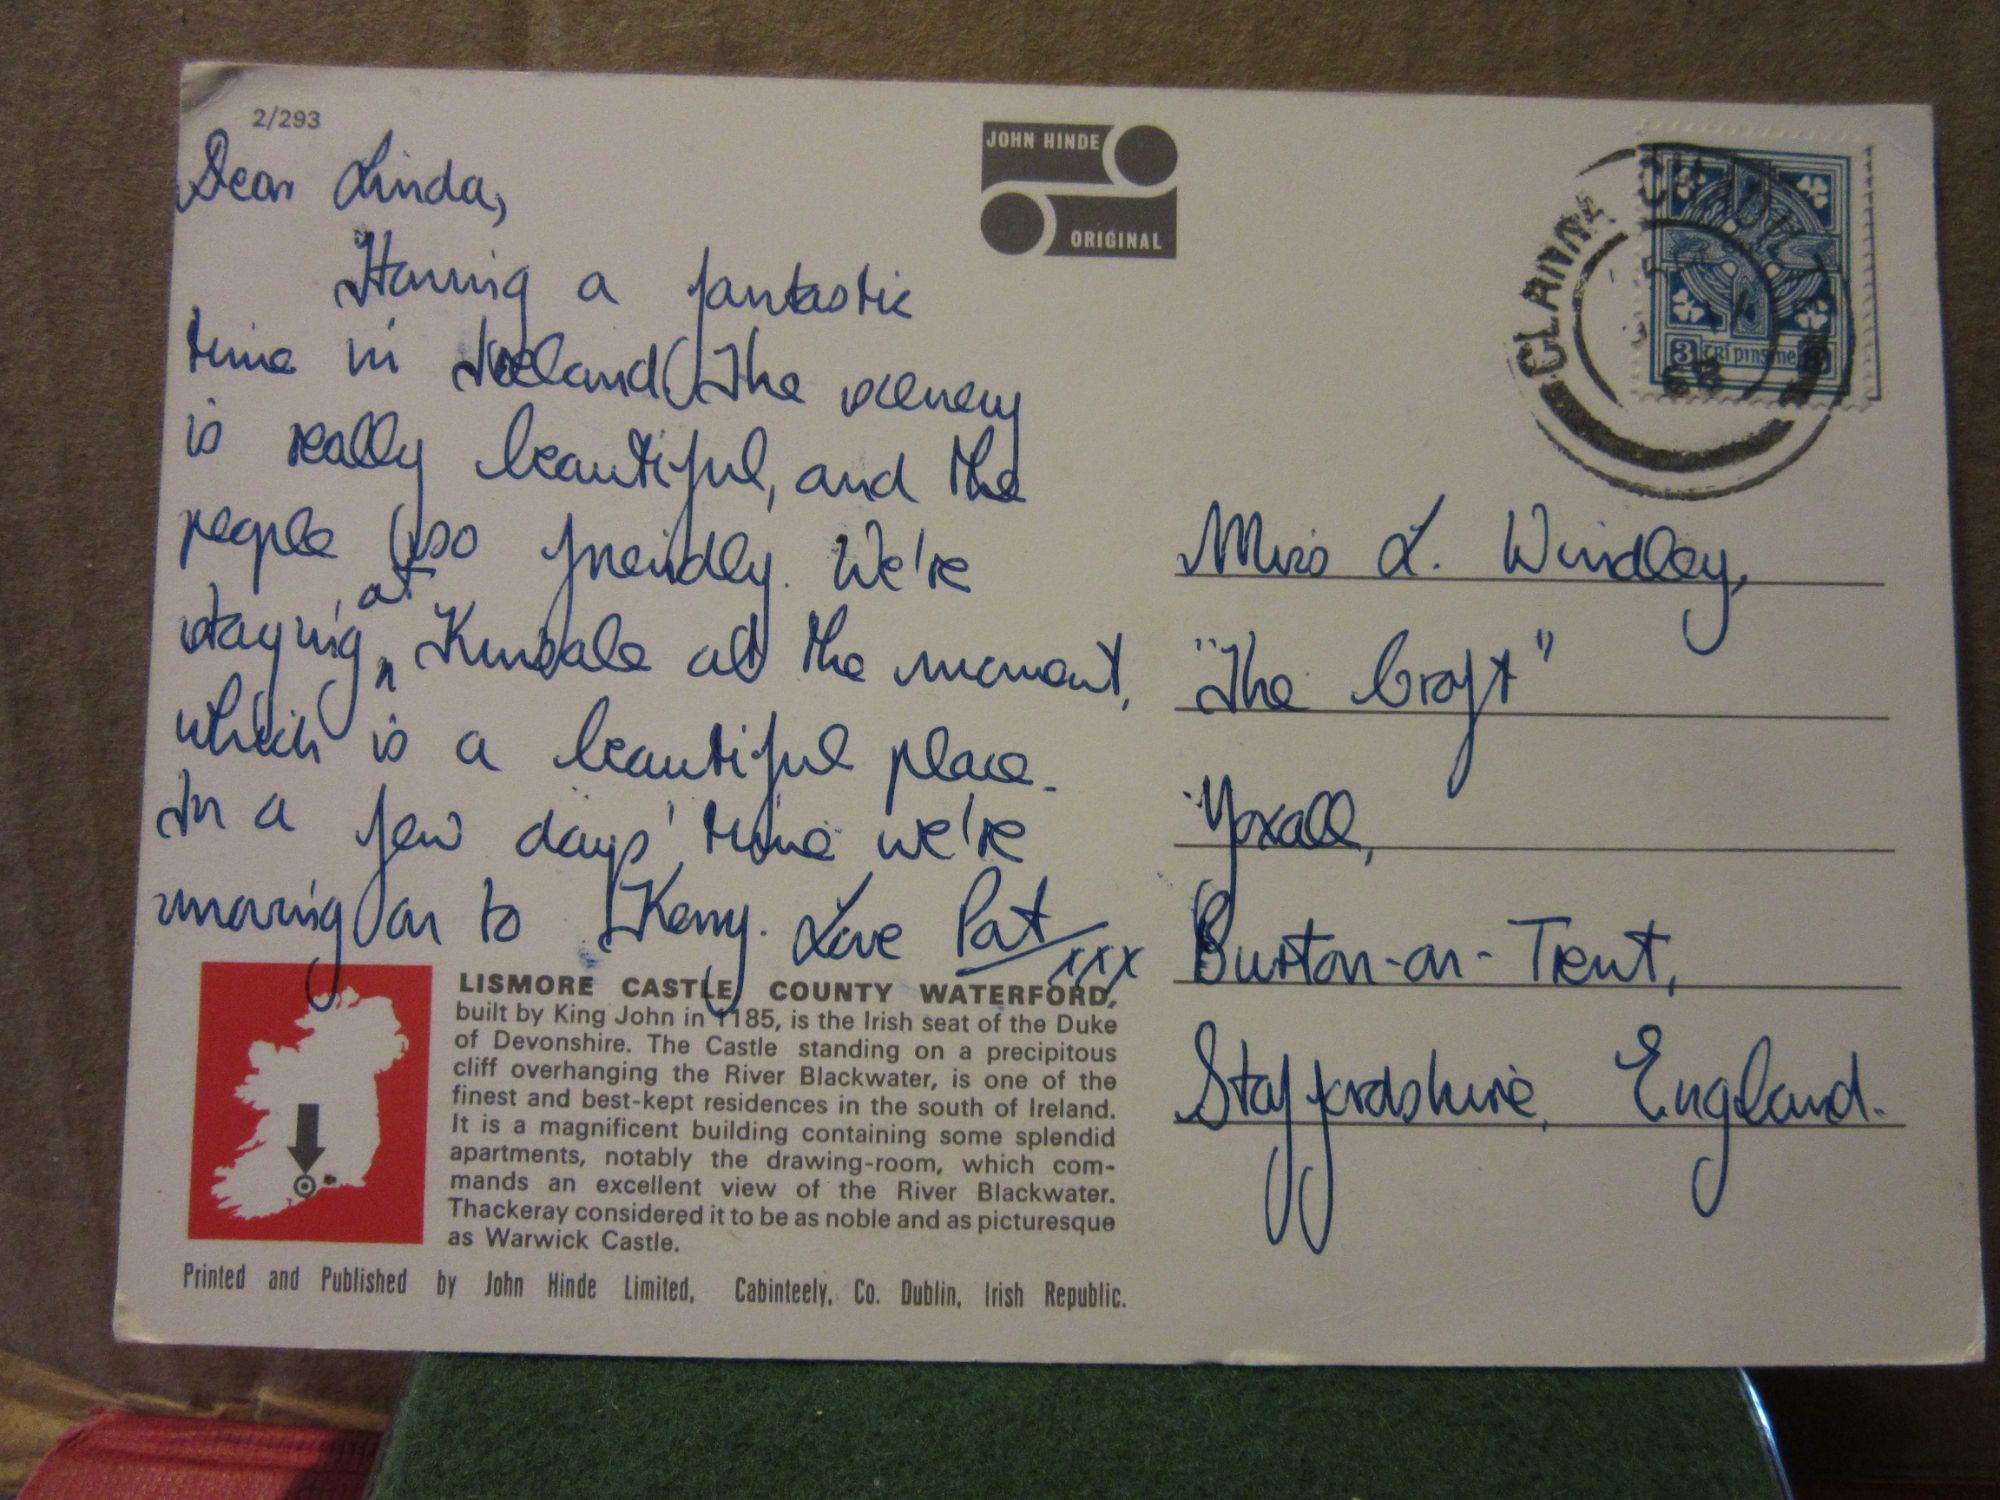 2/293
JOHN HINDE
ORIGINAL
Dear Linda,
Having a fantastic
time in Ireland. The scenery
is really beautiful, and the
people so freindly. We're
staying at Kinsale at the moment,
which is a beautiful place.
In a few days' time we're
moving on to Kerry. Love Pat
xxx
3 trí pinsine 3
68
Miss L. Windley,
"The Croft"
Yoxall,
Burton-on-Trent,
Staffordshire, England.
LISMORE CASTLE, COUNTY WATERFORD,
built by King John in 1185, is the Irish seat of the Duke
of Devonshire. The Castle standing on a precipitous
cliff overhanging the River Blackwater, is one of the
finest and best-kept residences in the south of Ireland.
It is a magnificent building containing some splendid
apartments, notably the drawing-room, which com-
mands an excellent view of the River Blackwater.
Thackeray considered it to be as noble and as picturesque
as Warwick Castle.
Printed and Published by John Hinde Limited, Cabinteely, Co. Dublin, Irish Republic.